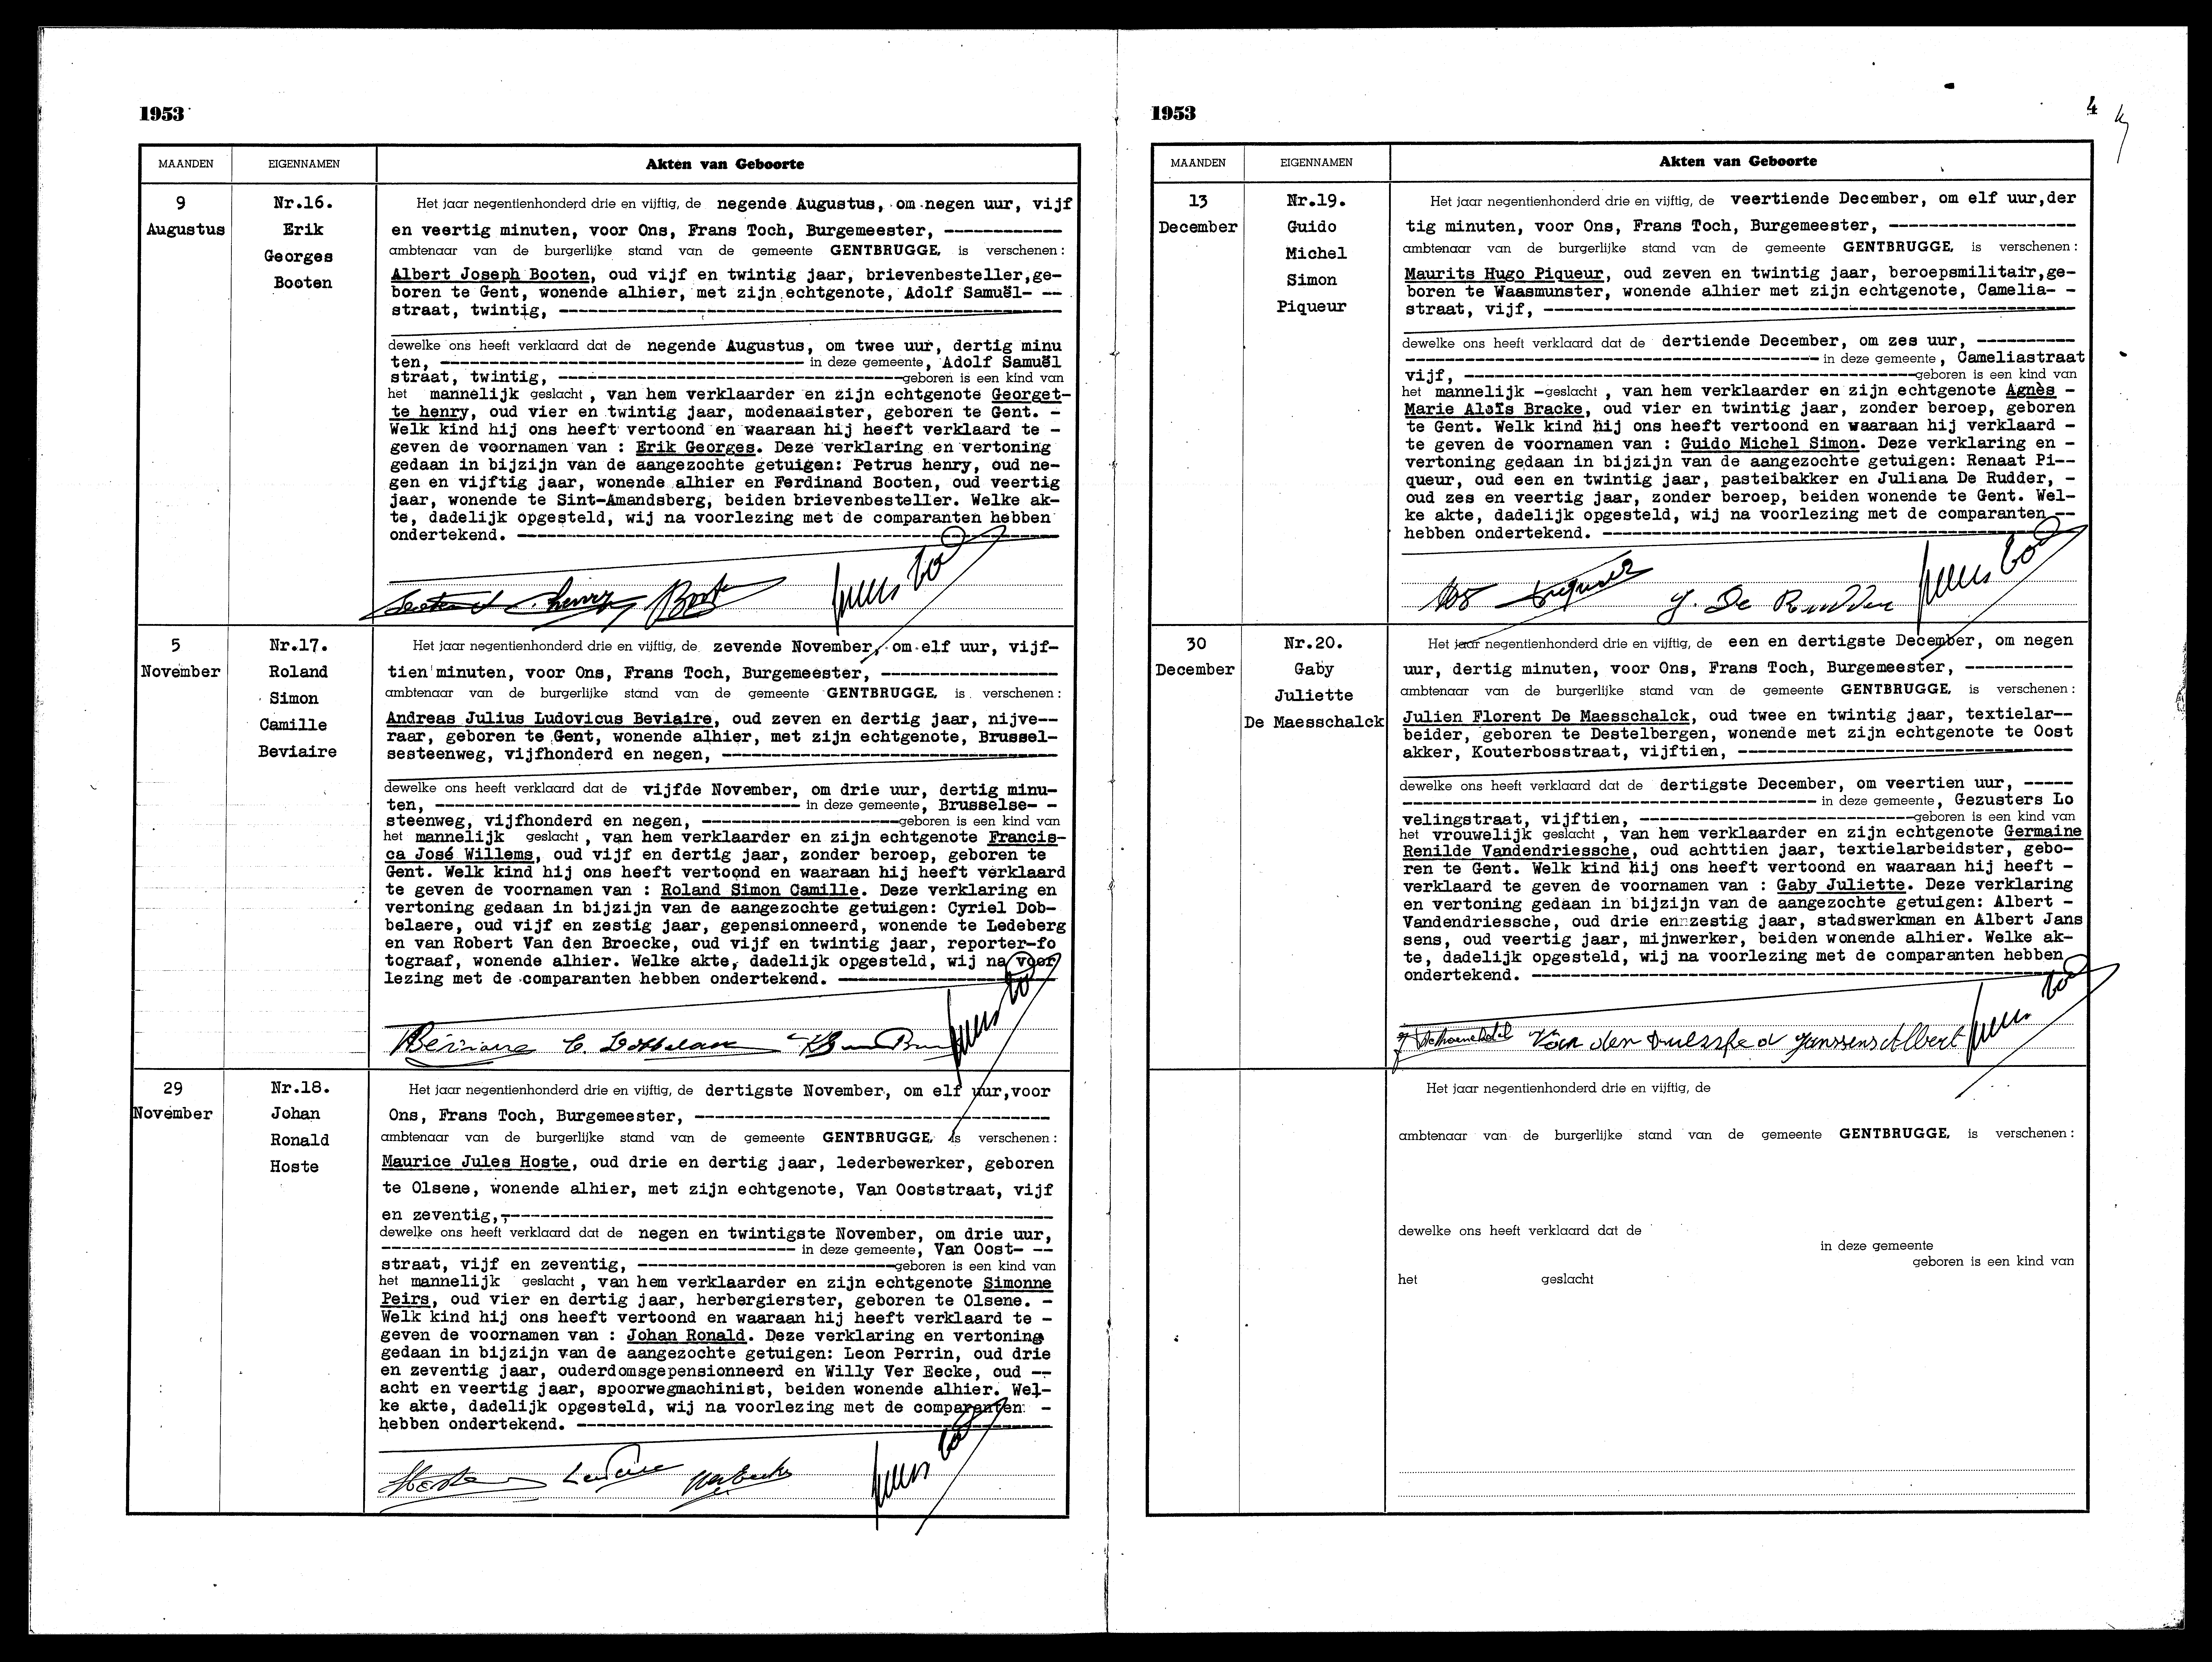 1953
MAANDEN
EIGENNAMEN
Akten van Geboorte
9
Augustus
Nr.16.
Erik
Georges
Booten
Het jaar negentienhonderd drie en vijftig, de negende Augustus, om negen uur, vijf
en veertig minuten, voor Ons, Frans Toch, Burgemeester, ------------
ambtenaar van de burgerlijke stand van de gemeente GENTBRUGGE, is verschenen:
Albert Joseph Booten, oud vijf en twintig jaar, brievenbesteller,ge-
boren te Gent, wonende alhier, met zijn echtgenote, Adolf Samuël- --
straat, twintig, ------------
dewelke ons heeft verklaard dat de negende Augustus, om twee uur, dertig minu
ten, ------------ in deze gemeente, Adolf Samuël
straat, twintig, ------------geboren is een kind van
het mannelijk geslacht, van hem verklaarder en zijn echtgenote Georget-
te henry, oud vier en twintig jaar, modenaaister, geboren te Gent. -
Welk kind hij ons heeft vertoond en waaraan hij heeft verklaard te -
geven de voornamen van : Erik Georges. Deze verklaring en vertoning
gedaan in bijzijn van de aangezochte getuigen: Petrus henry, oud ne-
gen en vijftig jaar, wonende alhier en Ferdinand Booten, oud veertig
jaar, wonende te Sint-Amandsberg, beiden brievenbesteller. Welke ak-
te, dadelijk opgesteld, wij na voorlezing met de comparanten hebben
ondertekend. ------------
henry Booten
5
November
Nr.17.
Roland
Simon
Camille
Beviaire
Het jaar negentienhonderd drie en vijftig, de zevende November, om elf uur, vijf-
tien minuten, voor Ons, Frans Toch, Burgemeester, ------------
ambtenaar van de burgerlijke stand van de gemeente GENTBRUGGE, is verschenen:
Andreas Julius Ludovicus Beviaire, oud zeven en dertig jaar, nijve--
raar, geboren te Gent, wonende alhier, met zijn echtgenote, Brussel-
sesteenweg, vijfhonderd en negen, ------------
dewelke ons heeft verklaard dat de vijfde November, om drie uur, dertig minu-
ten, ------------ in deze gemeente, Brusselse- -
steenweg, vijfhonderd en negen, ------------geboren is een kind van
het mannelijk geslacht, van hem verklaarder en zijn echtgenote Francis-
ca José Willems, oud vijf en dertig jaar, zonder beroep, geboren te
Gent. Welk kind hij ons heeft vertoond en waaraan hij heeft verklaard
te geven de voornamen van : Roland Simon Camille. Deze verklaring en
vertoning gedaan in bijzijn van de aangezochte getuigen: Cyriel Dob-
belaere, oud vijf en zestig jaar, gepensionneerd, wonende te Ledeberg
en van Robert Van den Broecke, oud vijf en twintig jaar, reporter-fo
tograaf, wonende alhier. Welke akte, dadelijk opgesteld, wij na voor
lezing met de comparanten hebben ondertekend. ------------
Beviaire
29
November
Nr.18.
Johan
Ronald
Hoste
Het jaar negentienhonderd drie en vijftig, de dertigste November, om elf uur,voor
Ons, Frans Toch, Burgemeester, ------------
ambtenaar van de burgerlijke stand van de gemeente GENTBRUGGE, is verschenen:
Maurice Jules Hoste, oud drie en dertig jaar, lederbewerker, geboren
te Olsene, wonende alhier, met zijn echtgenote, Van Ooststraat, vijf
en zeventig, ------------
dewelke ons heeft verklaard dat de negen en twintigste November, om drie uur,
------------ in deze gemeente, Van Oost- --
straat, vijf en zeventig, ------------geboren is een kind van
het mannelijk geslacht, van hem verklaarder en zijn echtgenote Simonne
Peirs, oud vier en dertig jaar, herbergierster, geboren te Olsene. -
Welk kind hij ons heeft vertoond en waaraan hij heeft verklaard te -
geven de voornamen van : Johan Ronald. Deze verklaring en vertoning
gedaan in bijzijn van de aangezochte getuigen: Leon Perrin, oud drie
en zeventig jaar, ouderdomsgepensionneerd en Willy Ver Eecke, oud --
acht en veertig jaar, spoorwegmachinist, beiden wonende alhier. Wel-
ke akte, dadelijk opgesteld, wij na voorlezing met de comparanten -
hebben ondertekend. ------------
1953
4
MAANDEN
EIGENNAMEN
Akten van Geboorte
13
December
Nr.19.
Guido
Michel
Simon
Piqueur
Het jaar negentienhonderd drie en vijftig, de veertiende December, om elf uur,der
tig minuten, voor Ons, Frans Toch, Burgemeester, ------------
ambtenaar van de burgerlijke stand van de gemeente GENTBRUGGE, is verschenen:
Maurits Hugo Piqueur, oud zeven en twintig jaar, beroepsmilitair,ge-
boren te Waasmunster, wonende alhier met zijn echtgenote, Camelia- -
straat, vijf, ------------
dewelke ons heeft verklaard dat de dertiende December, om zes uur, ----------
------------ in deze gemeente, Cameliastraat
vijf, ------------geboren is een kind van
het mannelijk -geslacht, van hem verklaarder en zijn echtgenote Agnès -
Marie Aloïs Bracke, oud vier en twintig jaar, zonder beroep, geboren
te Gent. Welk kind hij ons heeft vertoond en waaraan hij verklaard -
te geven de voornamen van : Guido Michel Simon. Deze verklaring en -
vertoning gedaan in bijzijn van de aangezochte getuigen: Renaat Pi--
queur, oud een en twintig jaar, pasteibakker en Juliana De Rudder, -
oud zes en veertig jaar, zonder beroep, beiden wonende te Gent. Wel-
ke akte, dadelijk opgesteld, wij na voorlezing met de comparanten --
hebben ondertekend. ------------
J. De Rudder
30
December
Nr.20.
Gaby
Juliette
De Maesschalck
Het jaar negentienhonderd drie en vijftig, de een en dertigste December, om negen
uur, dertig minuten, voor Ons, Frans Toch, Burgemeester, -----------
ambtenaar van de burgerlijke stand van de gemeente GENTBRUGGE, is verschenen:
Julien Florent De Maesschalck, oud twee en twintig jaar, textielar--
beider, geboren te Destelbergen, wonende met zijn echtgenote te Oost
akker, Kouterbosstraat, vijftien, ------------
dewelke ons heeft verklaard dat de dertigste December, om veertien uur, -----
------------ in deze gemeente, Gezusters Lo
velingstraat, vijftien, ------------geboren is een kind van
het vrouwelijk geslacht, van hem verklaarder en zijn echtgenote Germaine
Renilde Vandendriessche, oud achttien jaar, textielarbeidster, gebo-
ren te Gent. Welk kind hij ons heeft vertoond en waaraan hij heeft -
verklaard te geven de voornamen van : Gaby Juliette. Deze verklaring
en vertoning gedaan in bijzijn van de aangezochte getuigen: Albert -
Vandendriessche, oud drie en zestig jaar, stadswerkman en Albert Jans
sens, oud veertig jaar, mijnwerker, beiden wonende alhier. Welke ak-
te, dadelijk opgesteld, wij na voorlezing met de comparanten hebben
ondertekend. ------------
Janssens Albert
Het jaar negentienhonderd drie en vijftig, de
ambtenaar van de burgerlijke stand van de gemeente GENTBRUGGE, is verschenen:
dewelke ons heeft verklaard dat de
in deze gemeente
geboren is een kind van
het geslacht